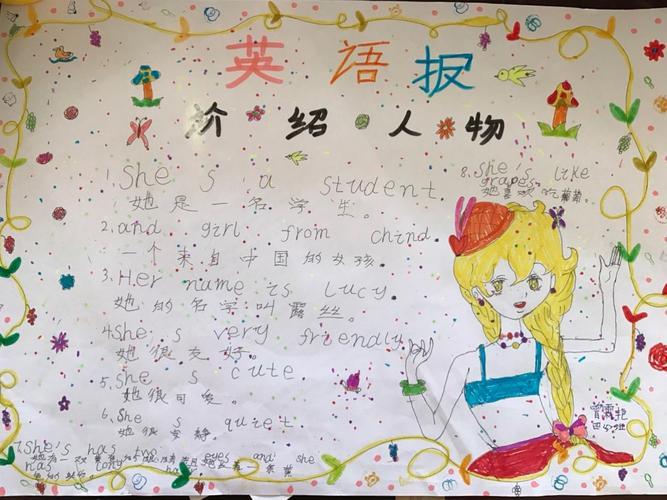 英语报
介绍人物
1. She s a student.
她是一名学生。
2. and girl from chind.
一个来自中国的女孩。
3. Her name is Lucy
她的名字叫露丝。
4. She s very friendly
她很友好。
5. She s cute
她很可爱。
6. She s quret
她很安静。
7. She's has eyes and she
has long ha
8. She's like
grapes.
她喜欢吃葡萄。